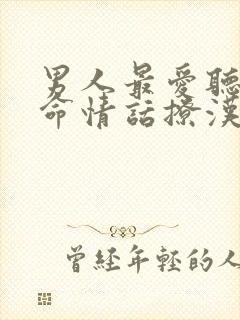 男人最愛聽
命情話撩漢
曾經年輕的人